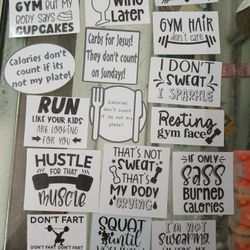 GYM BUT MY
BODY SAYS
CUPCAKES
WINE
LATER
GYM HAIR
don't care
Calories don't
count if its
not my plate!
Carbs for Jesus!
They don't count
on Sundays!
I DON'T
SWEAT
I SPARKLE
Calories
don't
count if
its not my
plate!
RUN
LIKE YOUR KIDS
ARE LOOKING
FOR YOU
Resting
gym face
HUSTLE
FOR THAT
muscle
THAT'S NOT
SWEAT
THAT'S
MY BODY
CRYING
IF ONLY
SASS
BURNED
CALORIES
DON'T FART
DON'T FART DON'T FART
SQUAT
until
I'M NOT
SWEARING